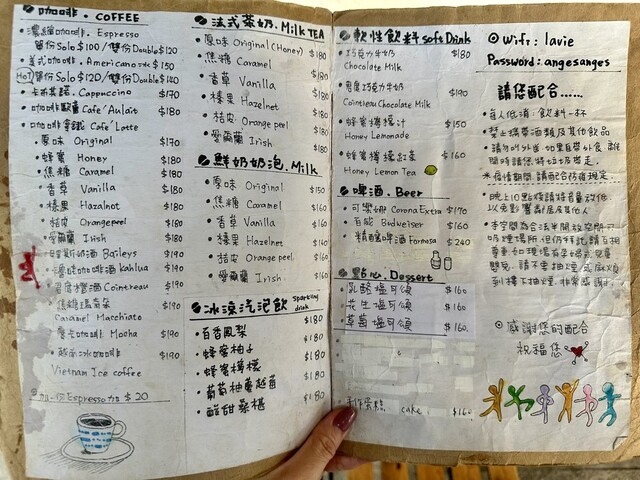 咖啡．COFFEE
濃縮咖啡．Espresso
單份Solo $100/雙份Double $120
美式咖啡．Americano 冰 $150
Hot 單份Solo $120/雙份Double $140
卡布其諾．Cappuccino $170
咖啡歐蕾 Cafe'Aulait $180
咖啡拿鐵 Cafe'Latte
原味 Original $170
蜂蜜 Honey $180
焦糖 Caramel $180
香草 Vanilla $180
榛果 Hazalnot $180
桔皮 Orangepeel $180
愛爾蘭 Irish $180
貝里斯奶酒 Baileys $190
咖啡酒 Kahlua $190
君度橙酒 Cointreau $190
焦糖瑪奇朵
Caramel Macchiato $190
摩卡咖啡 Mocha $190
越南冰咖啡 $190
Vietnam Ice coffee
加一份Espresso加 $20
法式茶奶．Milk TEA
原味 Original (Honey) $180
焦糖 Caramel $180
香草 Vanilla $180
榛果 Hazelnet $180
桔皮 Orange peel $180
愛爾蘭 Irish $180
鮮奶奶泡．Milk
原味 Original $150
焦糖 Caramel $160
香草 Vanilla $160
榛果 Hazelnet $160
桔皮 Orange peel $160
愛爾蘭 Irish $160
冰涼汽泡飲 Sparking drink
百香鳳梨 $180
蜂蜜柚子 $180
蜂蜜檸檬 $180
葡萄柚蔓越莓 $180
酸甜桑椹 $180
軟性飲料 soft Drink
巧克力牛奶 $180
Chocolate Milk
君度巧克力牛奶 $190
Cointreau Chocolate Milk
蜂蜜檸檬汁 $150
Honey Lemonade
蜂蜜檸檬紅茶 $160
Honey Lemon Tea
啤酒．Beer
可樂娜 Corona Extra $170
百威 Budweiser $160
精釀啤酒 Formosa $240
點心．Dessert
乳酪塩可頌 $160
花生塩可頌 $160
草莓塩可頌 $160
手作蛋糕 cake $160
Wifi: lavie
Password: angesanges
請您配合......
每人低消：飲料一杯
禁止攜帶酒類及其他飲品
請勿叫外賣 如果自帶外食，離
開時請您將垃圾帶走．
※疫情期間．請配合防疫規定．
晚上10點後請將音量放低
以免影響鄰居及其他人
本空間為合法半開放空間
感謝您的配合
祝福您